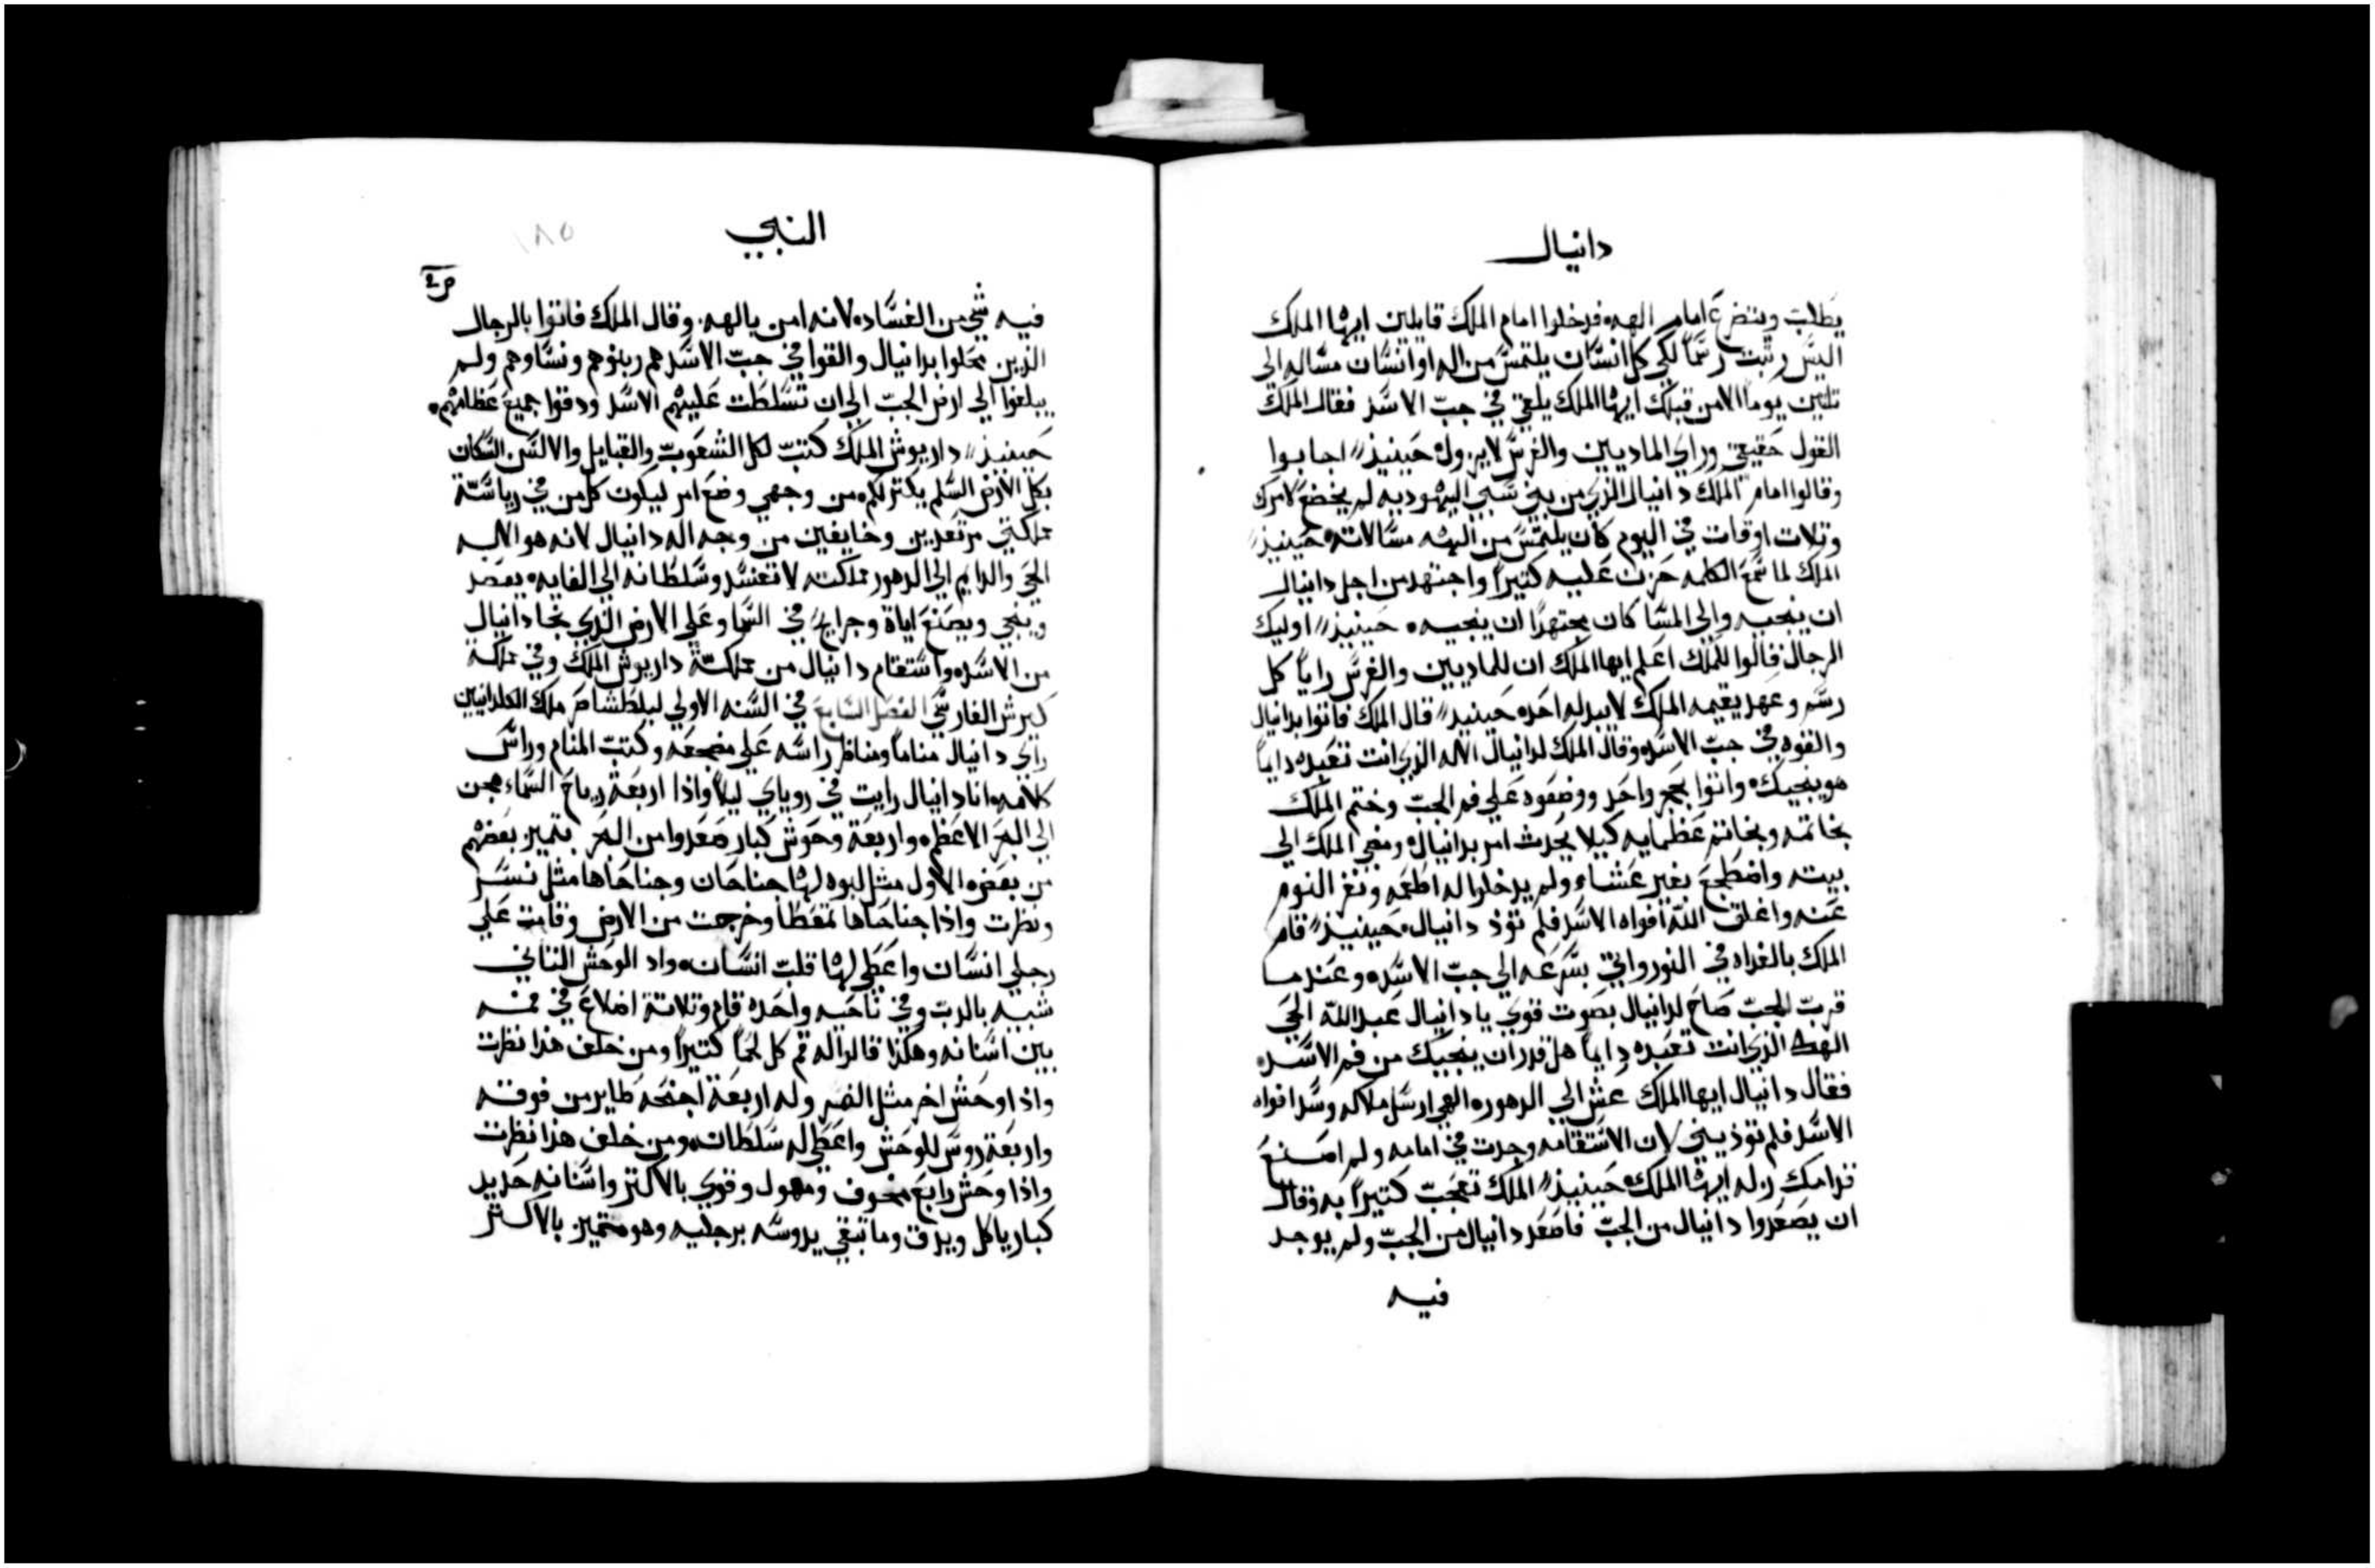 دانيال
يطلب ويتضرع امام الهه، فدخلوا امام الملك قايلين ايها الملك
اليس رتبت رسماً لكي كل انسان يلتمس من اله او انسان مساله الى
تلتين يوماً الا من قبلك ايها الملك يلقي في جب الاسد فقال الملك
القول حقيقي وراي الماديين والفرس لا يزول، حينيذ// اجابوا
وقالوا امام الملك دانيال الذي من بني سبي اليهوديه لم يخضع لامرك
وتلات اوقات في اليوم كان يلتمس من الهه مسالاته، حينيذ//
الملك لما سمع الكلمه حزن عليه كتيراً واجتهد من اجل دانيال
ان ينجيه والى المسا كان مجتهداً ان ينجيه، حينيذ// اوليك
الرجال قالوا للملك اعلم ايها الملك ان للماديين والفرس راياً كل
رسم وعهد يقيمه الملك لا يبدله احد، حينيذ// قال الملك فاتوا بدانيال
والقوه في جب الاسد، وقال الملك لدانيال الاله الذي انت تعبده دايماً
هو ينجيك، واتوا بحجر واحد ووضعوه على فم الجب وختم الملك
بخاتمه وبخاتم عظمايه كيلا يحدث امر بدانيال، ومضي الملك الى
بيته واضطجع بغير عشاء ولم يدخلوا له اطعمه ونفر النوم
عنه واغلق الله افواه الاسد فلم توذ دانيال، حينيذ// قام
الملك بالغداه في النور واتي بسرعه الي جب الاسد، وعندما
قرب الجب صاح لدانيال بصوت قوي يا دانيال عبد الله الحي
الهك الذي انت تعبده دايماً هل قدر ان ينجيك من فم الاسد،
فقال دانيال ايها الملك عش الي الدهور، الهي ارسل ملاكه وسد افواه
الاسد فلم توذيني لان الاستقامه وجدت في امامه ولم اصنع
قدامك زله ايها الملك، حينيذ// الملك تعجب كتيراً به وقال
ان يصعدوا دانيال من الجب فاصعد دانيال من الجب ولم يوجد
فيه
النبي
١٨٥
فيه شي من الفساد، لانه امن بالهه، وقال الملك فاتوا بالرجال
الذين محلوا بدانيال والقوا في جب الاسد هم وبنوهم ونساوهم ولم
يبلغوا الي ارض الجب الي ان تسلطت عليهم الاسد ودقوا جميع عظامهم،
حينيذ// داريوش الملك كتب لكل الشعوب والقبايل والالسن السكان
بكل الارض السلم يكتر لكم، من وجهي وضع امر ليكون كل من في رياسة
مملكتي مرتعدين وخايفين من وجه اله دانيال لانه هو الاله
الحي والدايم الي الدهور مملكته لا تفسد وسلطانه الي الغايه، يعضد
وينجي ويصنع اياة وجرايح في السما وعلي الارض الذي نجا دانيال
من الاسد، واستقام دانيال من مملكة داريوش الملك وفي مملكة
كيرش الفارسي الفصل السابع في السنه الاولي لبلطشاصر ملك الكلدانيين
راي دانيال مناماً ومناظر راسه علي مضجعه وكتب المنام وراس
كلامه، انا دانيال رايت في روياي ليلاً واذا اربعة رياح السماء هجن
الي البحر الاعظم، واربعة وحوش كبار صعدوا من البحر بتميز بعضهم
من بعض، الاول مثل لبوه لها جناحان وجناحاها مثل نسر
ونظرت واذا جناحاها تمعطا وخرجت من الارض وقامت علي
رجلي انسان واعطي لها قلب انسان، واد الوحش التاني
شبيه بالدب وفي ناحيه واحده قام وتلاتة اضلاع في فمه
بين اسنانه وهكذا قالوا له قم كل لحماً كتيراً ومن خلف هذا نظرت
واذا وحش اخر مثل النمر وله اربعة اجنحه طاير من فوقه
واربعة روس للوحش واعطي له سلطان، ومن خلف هذا نظرت
واذا وحش رابع مخوف ومهول وقوي بالاكتر واسنانه حديد
كبار ياكل ويدق وما تبقي يدوسه برجليه وهو متميز بالاكتر